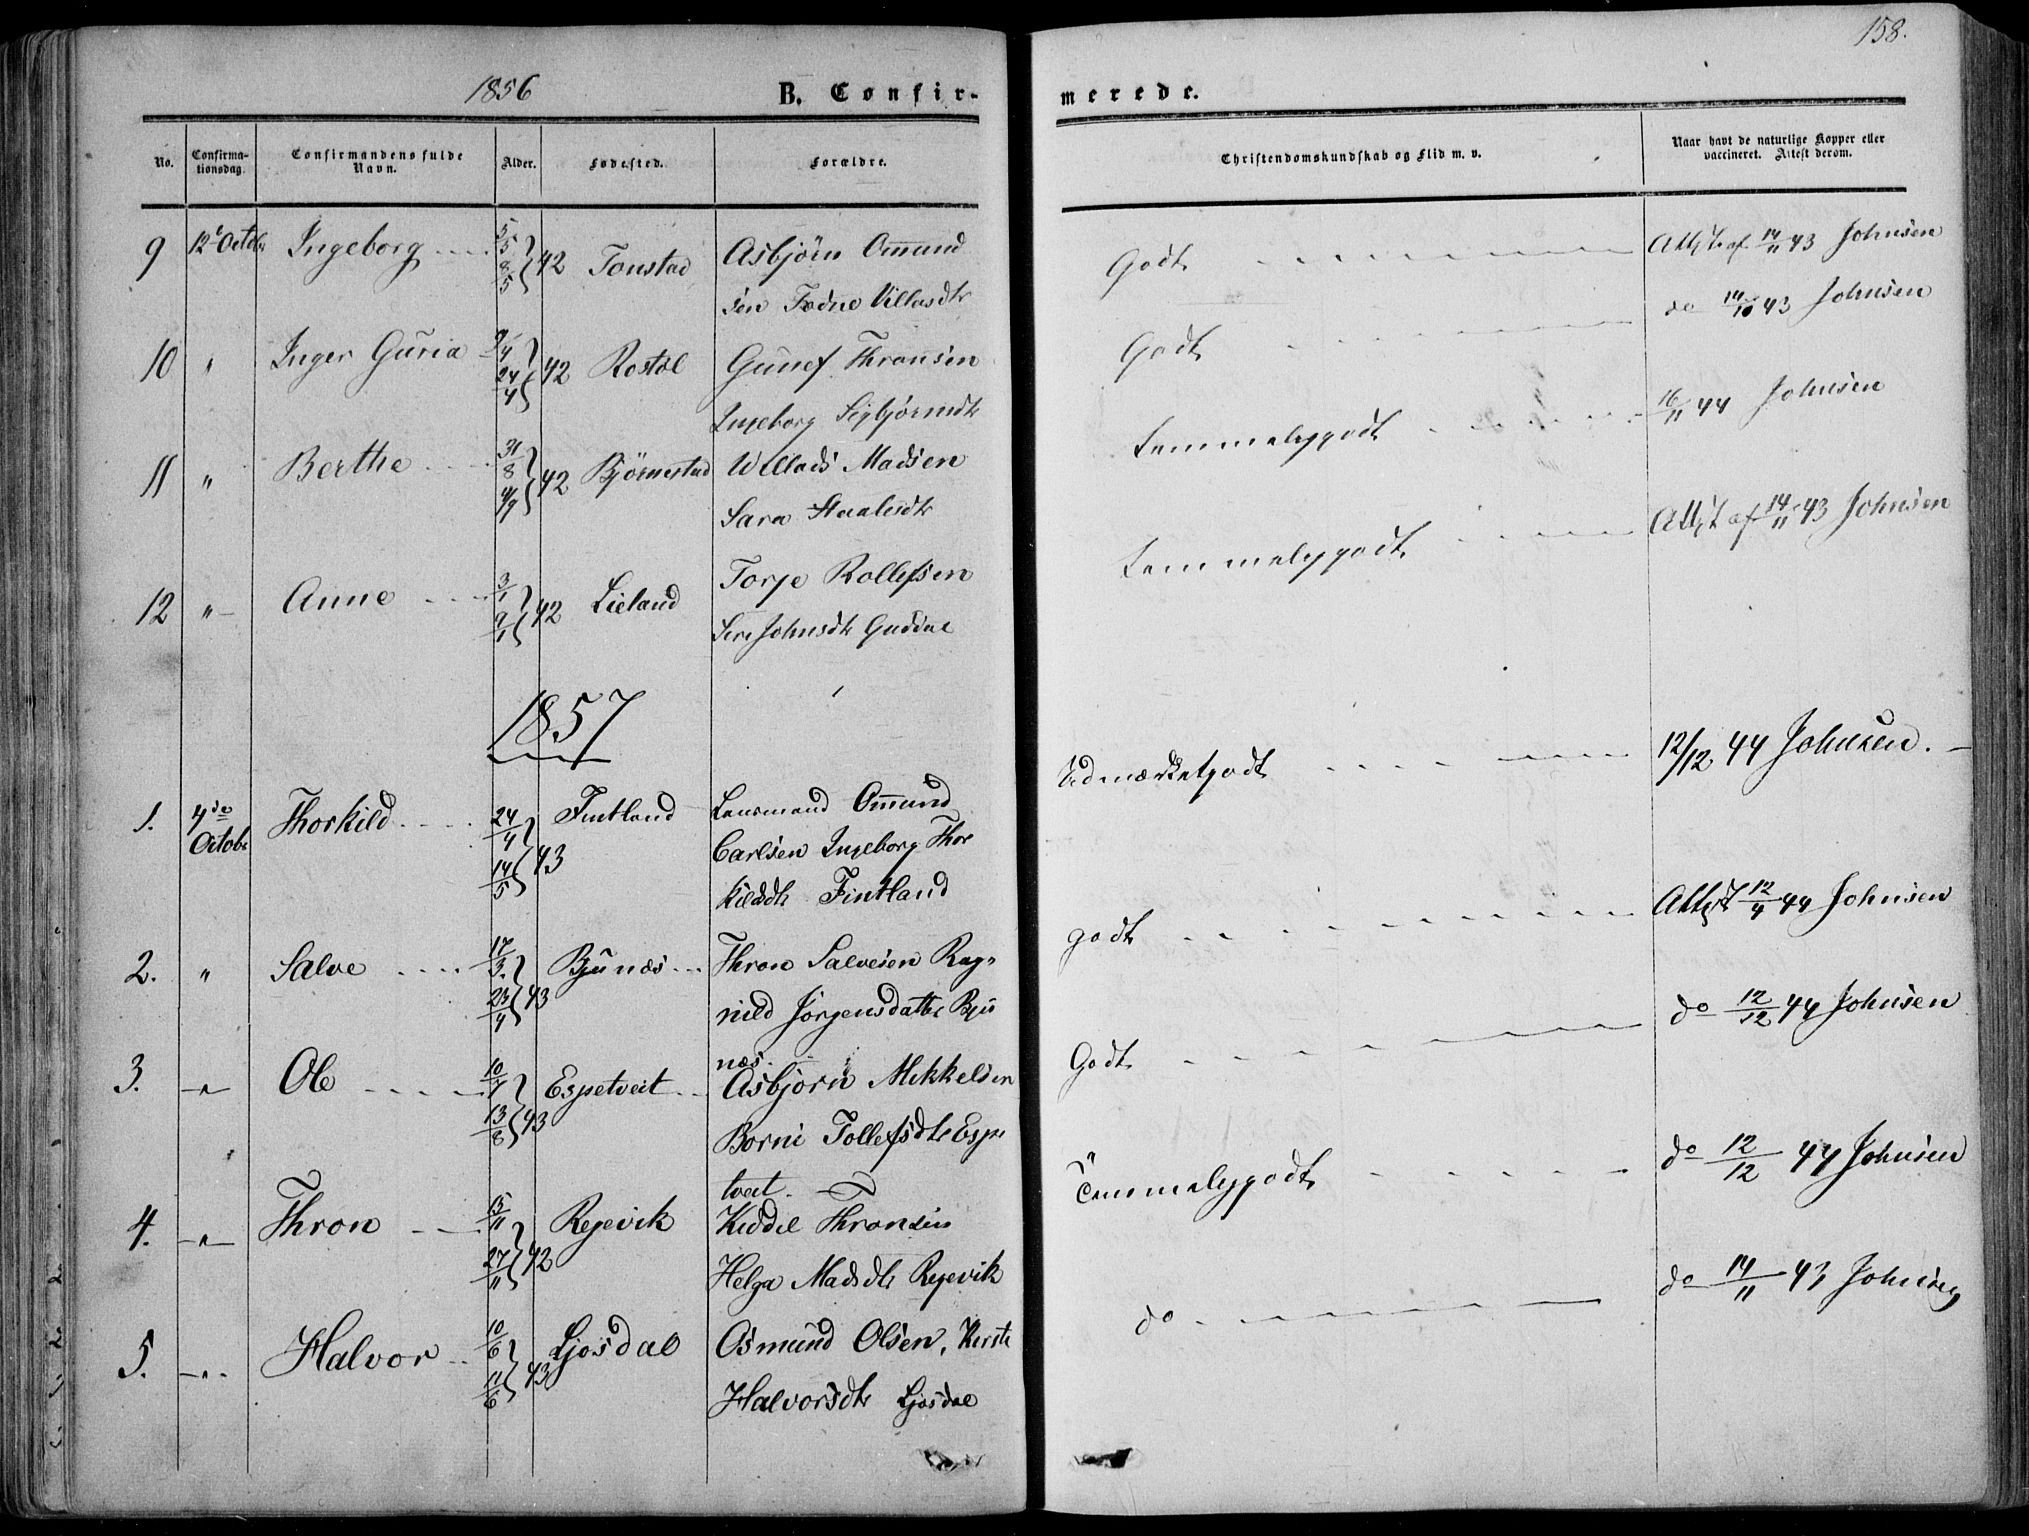 158.
1856
B. Confir-
merede.
No.
Confirma-
tionsdag
Confirmandens fulde
Navn.
Alder.
Fødested.
Forældre.
Christendomskundskab og Flid m. v.
Naar havt de naturlige Kopper eller
vaccineret. Attest derom.
9 12t Octobr Ingeborg 5/5 8/5 42 Tonstad Asbjörn Omund
sen Tedne Villasdtr
Godt Attst af 14/11 43 Johnsen
10 " Inger Guria 9/4 24/4 42 Rostøl Gunef Thronsen
Ingeborg Sigbjörnsdtr
Godt do 14/10 43 Johnsen
11 " Berthe 31/8 4/9 42 Björnestad Willads Madsen
Sara Staalesdtr
temmeligodt 16/11 44 Johnsen
12 " Anne 3/1 9/1 42 Lieland Torje Rollefsen
Siri Johnsdtr Guddal
temmeligodt Attst af 14/11 43 Johnsen
1857
1. 4de Thorkild 24/4 14/5 43 Fintland Lensmand Omund
Octobr Carlsen Ingeborg Thor
kildsdtr Fintland
Udmærketgodt 12/12 44 Johnsen.
2. " Salve 17/3. 23/4 43 Bjunæs Thron Salvesen Rag-
nild Jörgensdatter Bju
næs.
godt Attst 12/4 44 Johnsen
3. " Ole 10/7 13/8 43 Espetveit Asbjörn Mikkelsen
Borni Tollefsdtr Espe
tveit.
Godt do 12/12 44 Johnsen
4. " Thron 15/11 27/11 42 Rejevik Kiddel Thronsen
Helga Madsdtr Rejevik
Temmeligodt do 12/12 44 Johnsen
5. " Halvor 10/6 11/6 43 Ljosdal Osmund Olsen, Kirsti
Halvorsdtr Ljosdal
do do 14/11 43 Johnsen